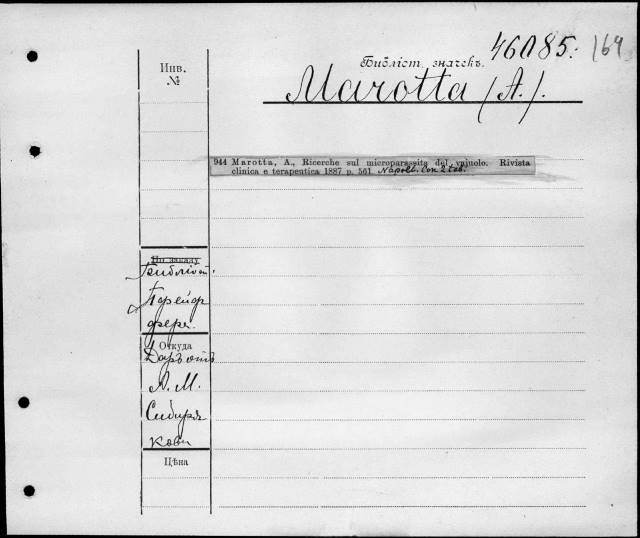 46085. 164
Инв.
№
Библіот. значекъ.
Marotta (A.).
944 Marotta, A., Ricerche sul microparassita del vajuolo. Rivista
clinica e terapeutica 1887 p. 561. Napoli. Con 2 tab.
По заказу
Библіот.
Откуда
Даръ отъ
А. М.
Сибиря
кова
Цѣна